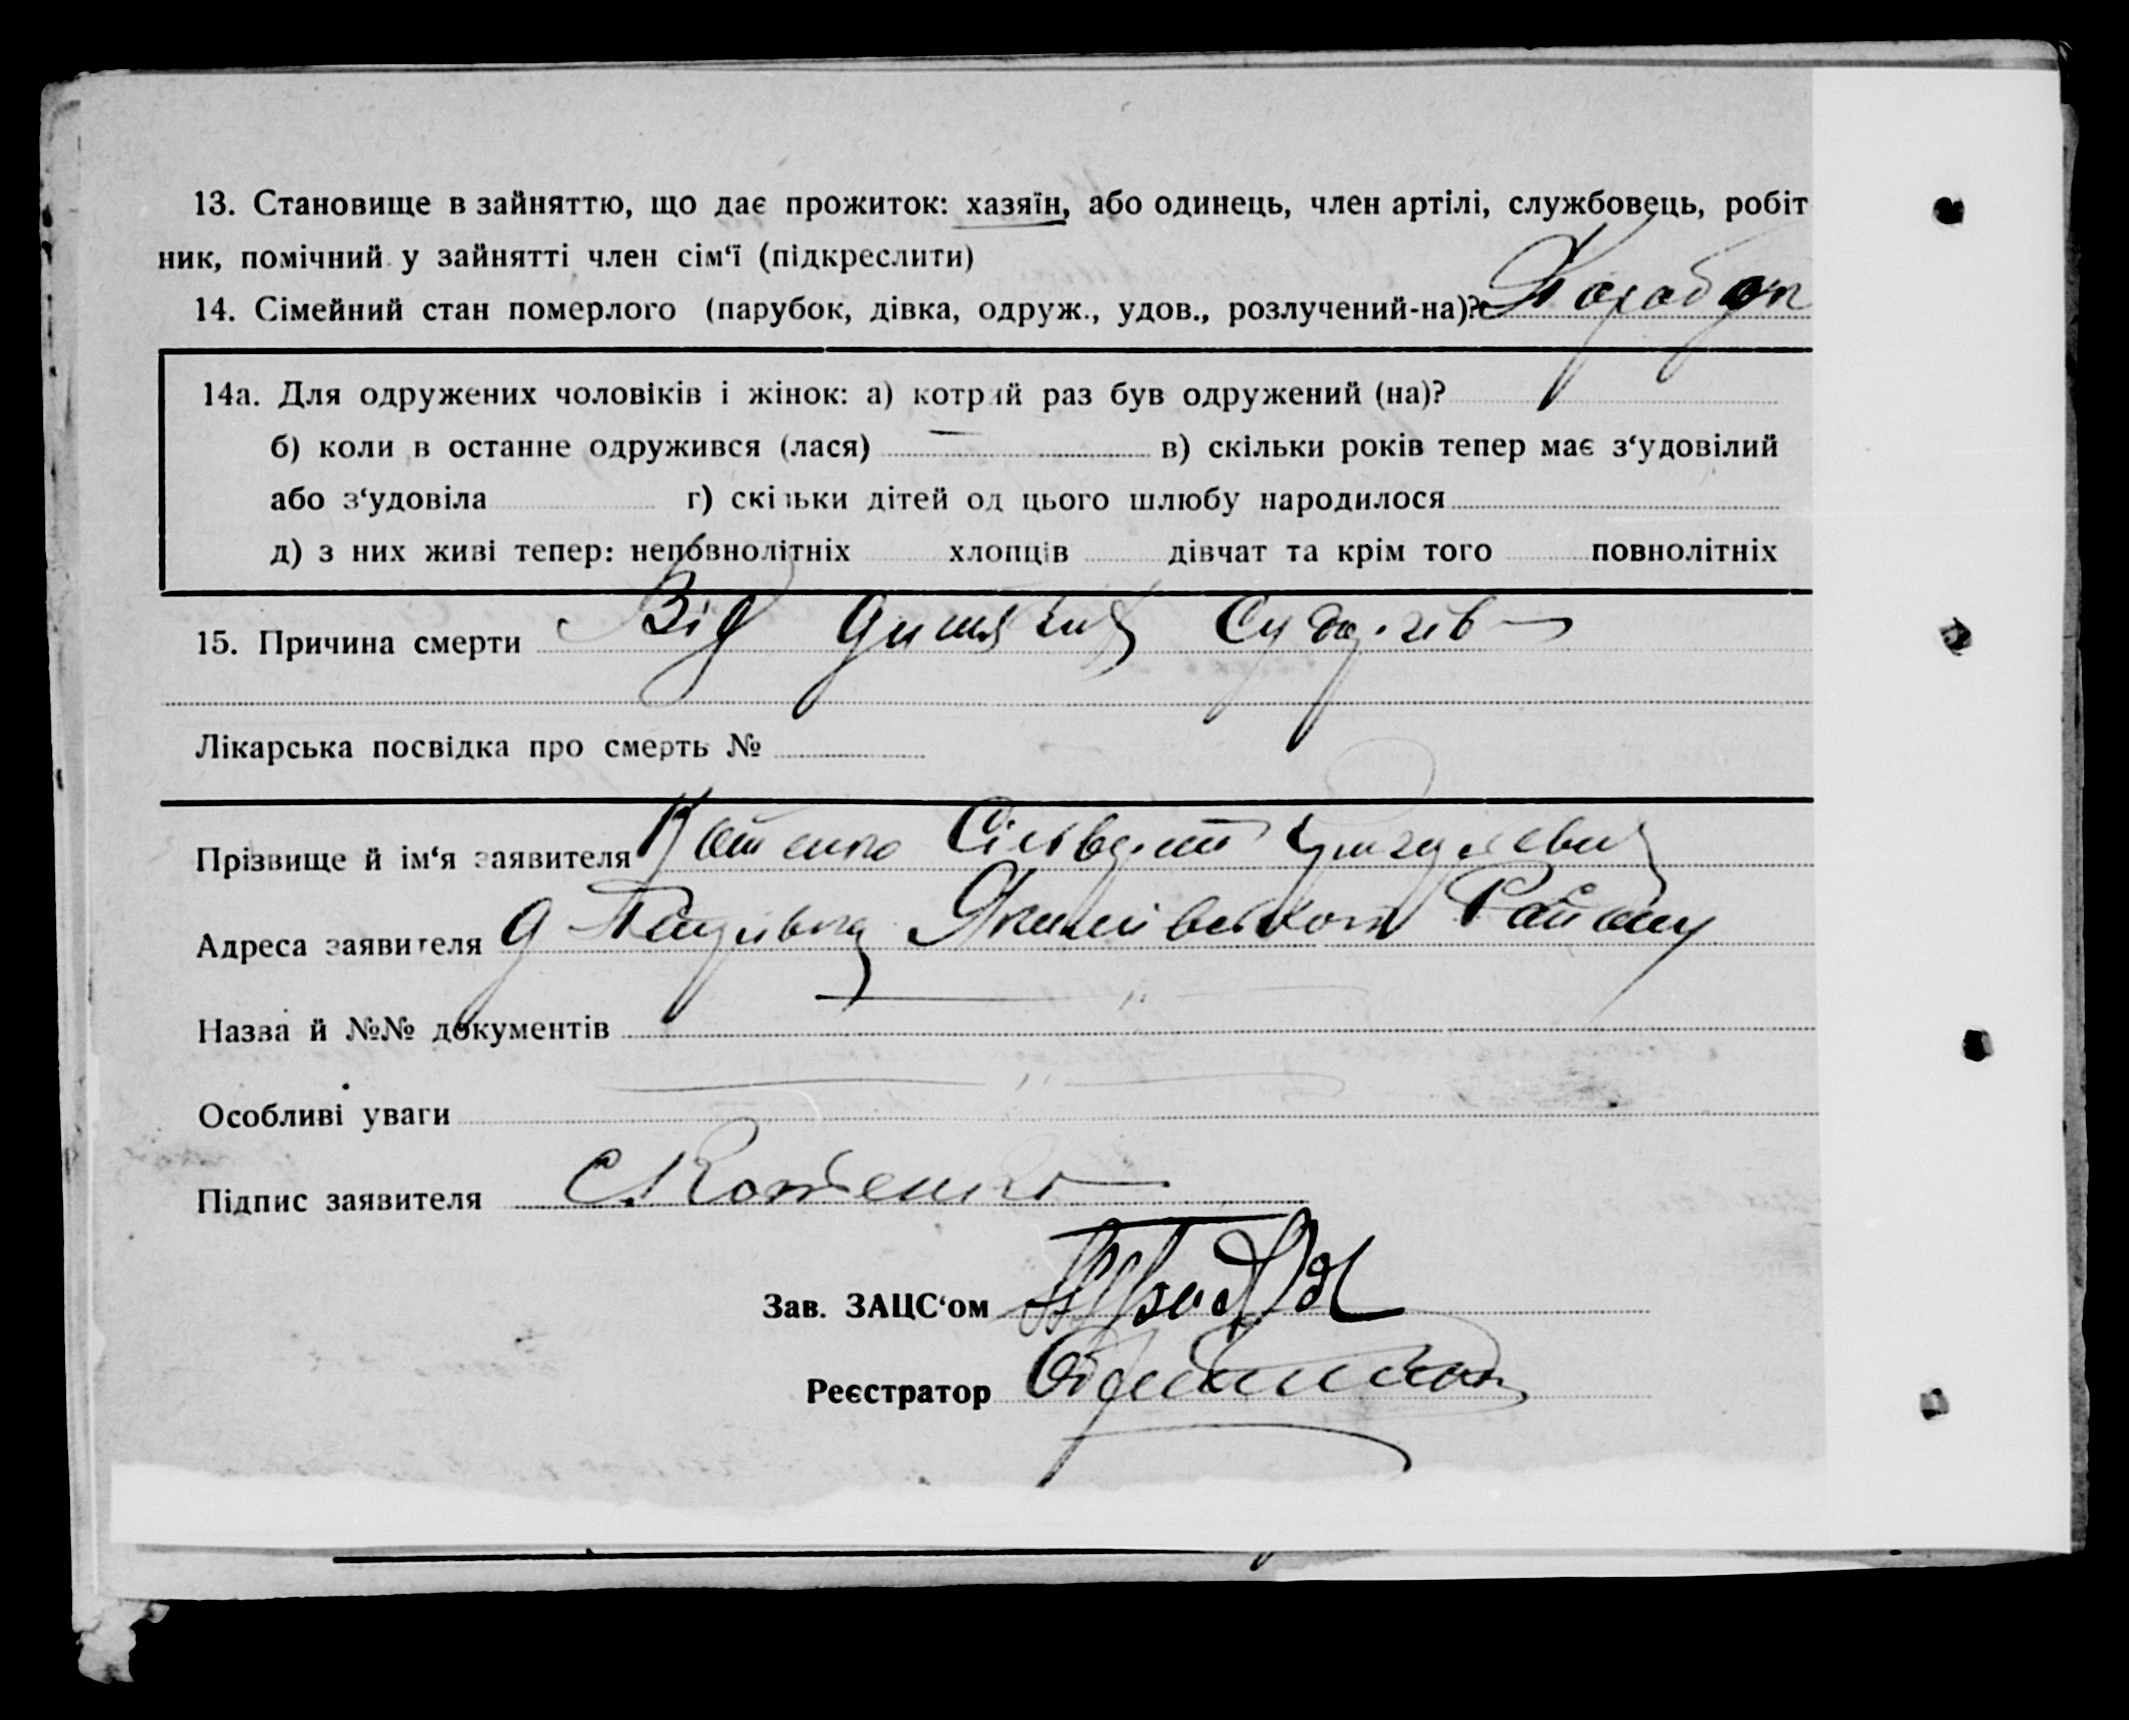 13. Становище в зайняттю, що дає прожиток: хазяїн, або одинець, член артілі, службовець, робіт
ник, помічний у зайнятті член сім‘ї (підкреслити)
14. Сімейний стан померлого (парубок, дівка, одруж., удов., розлучений-на)?
14а. Для одружених чоловіків і жінок: а) котрий раз був одружений (на)?
б) коли в останнє одружився (лася) в) скільки років тепер має з‘удовілий
або з‘удовіла г) скільки дітей од цього шлюбу народилося
д) з них живі тепер: неповнолітніх хлопців дівчат та крім того повнолітніх
15. Причина смерти Від дитячих
Лікарська посвідка про смерть №
Прізвище й ім‘я заявителя Котенко
Адреса заявителя Якимівського Району
Назва й №№ документів
Особливі уваги
Підпис заявителя С. Котенко
Зав. ЗАЦС‘ом
Реєстратор